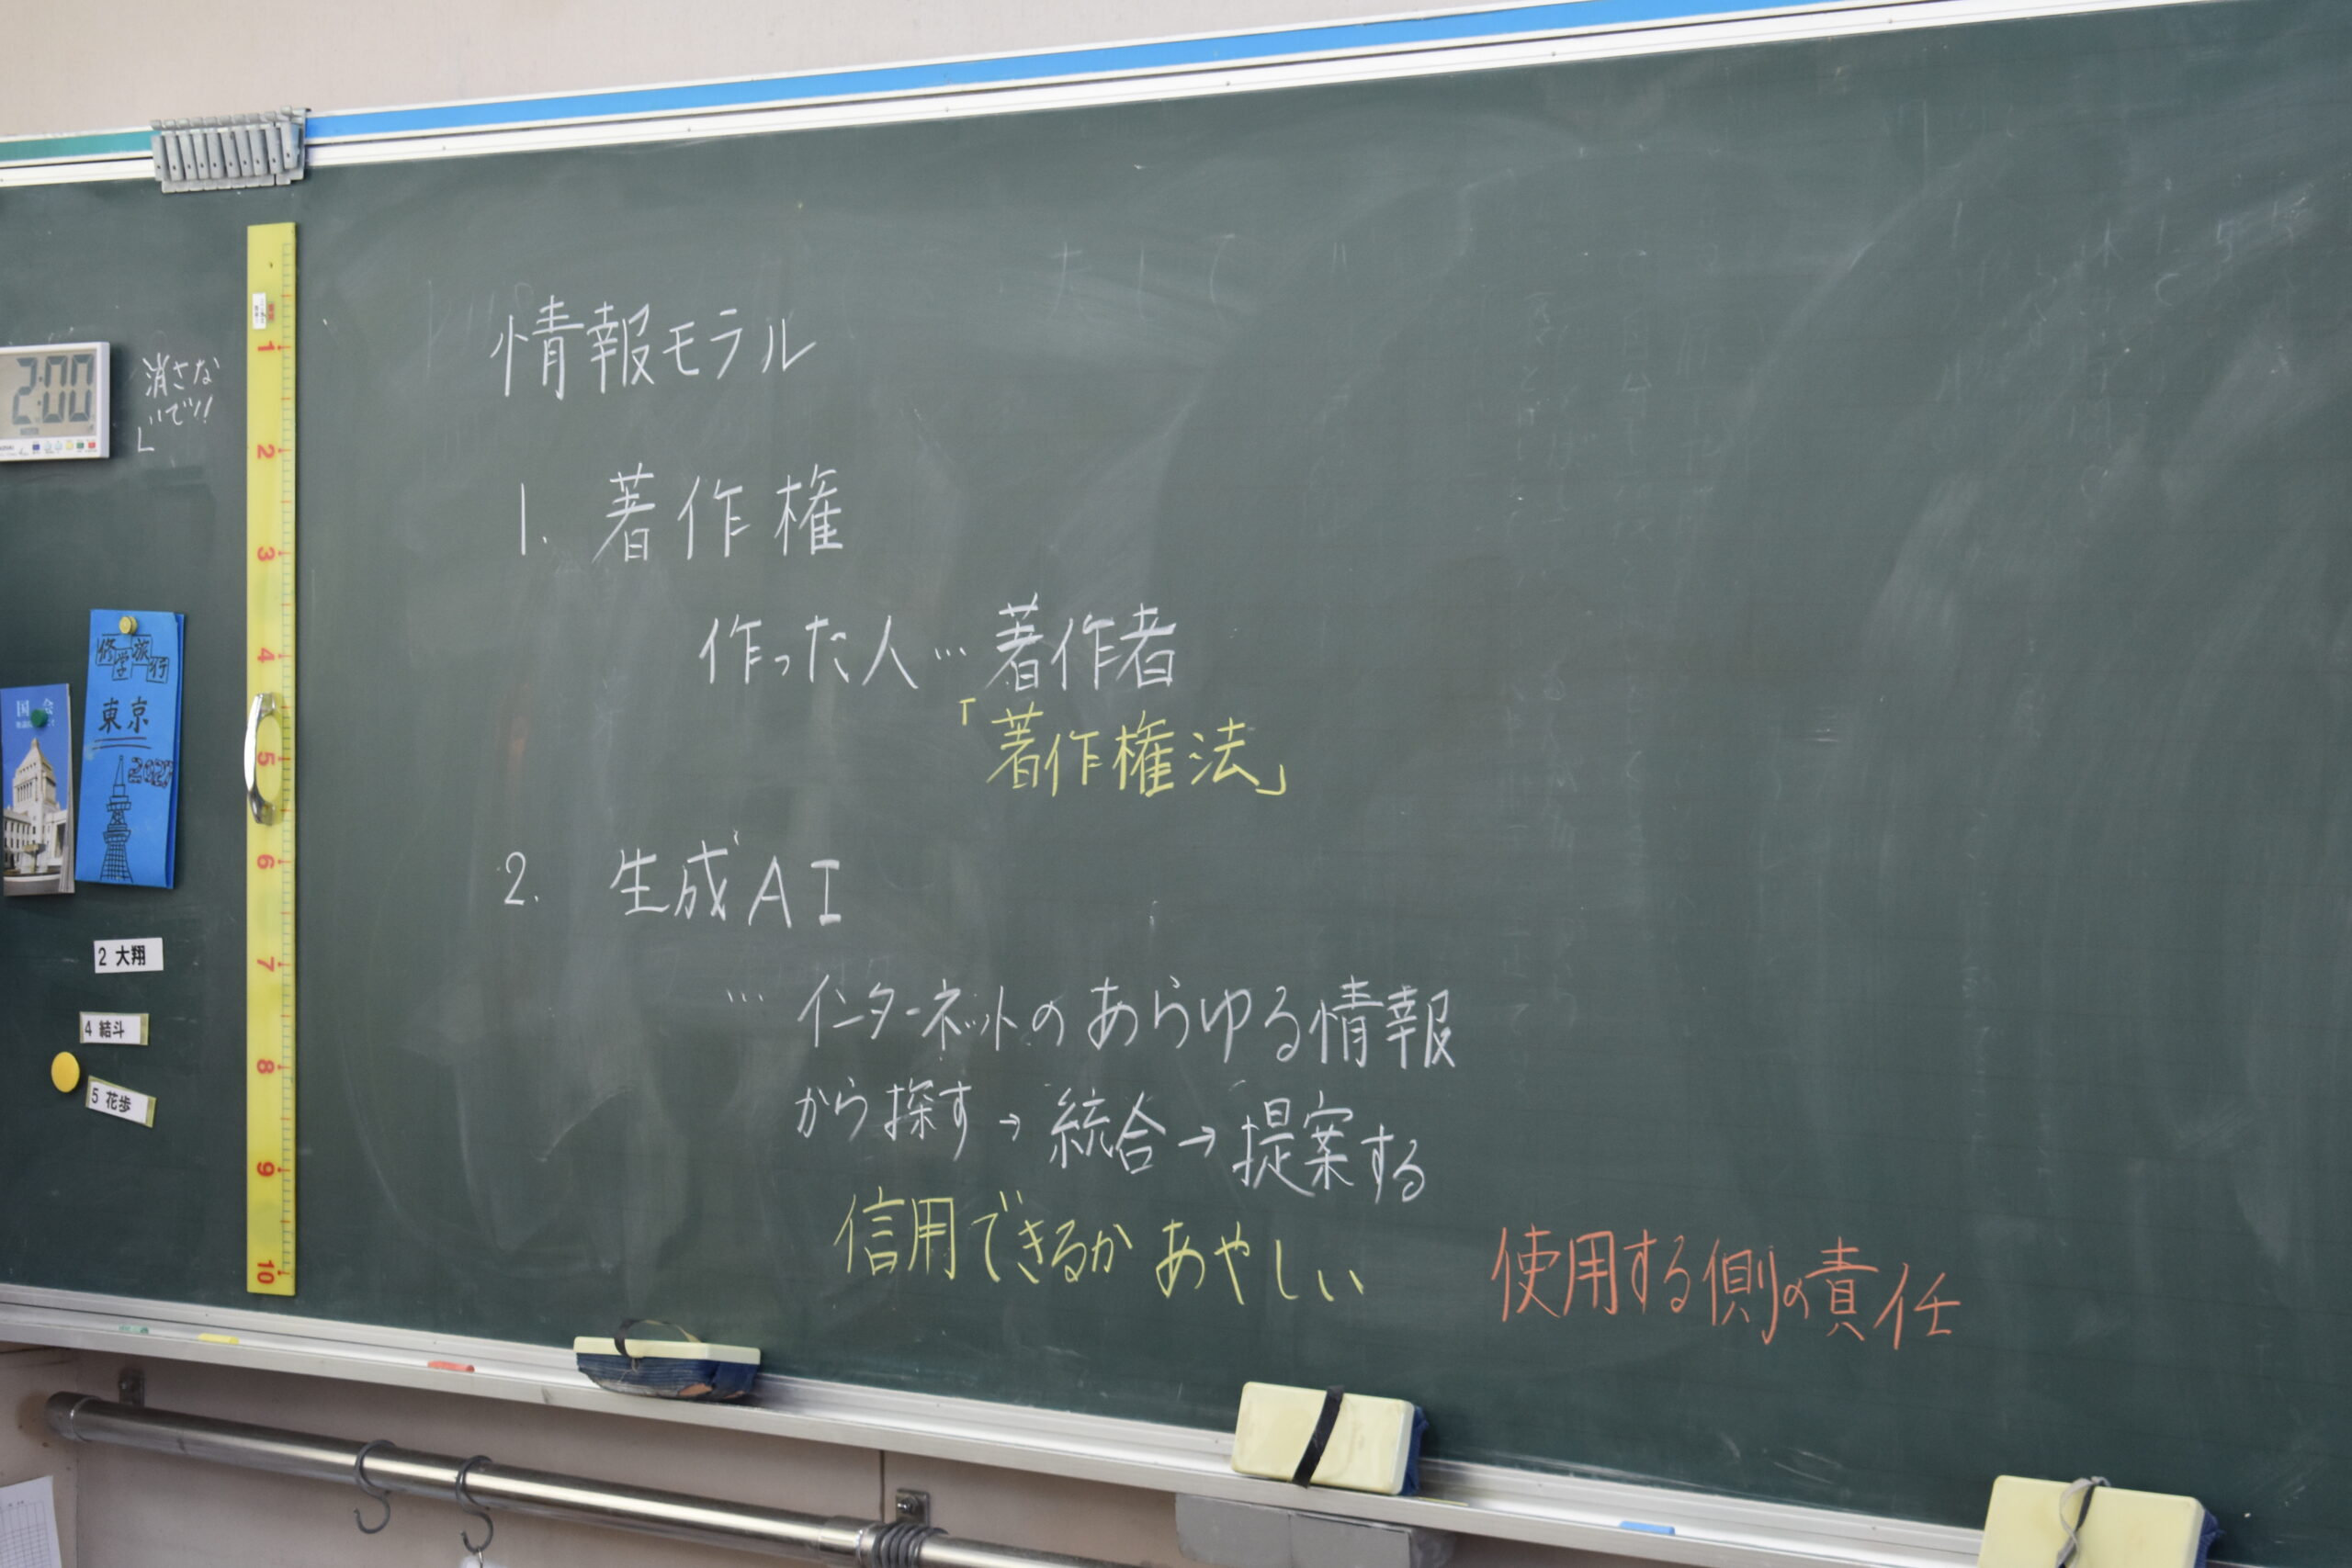 情報モラル
1. 著作権
作った人…著作者
「著作権法」
2. 生成AI
…インターネットのあらゆる情報
から探す→統合→提案する
信用できるか あやしい
使用する側の責任
2:00
消さな
いで!!
修学旅行
東京
国会
2 大翔
4 結斗
5 花歩
1
2
3
4
5
6
7
8
9
10